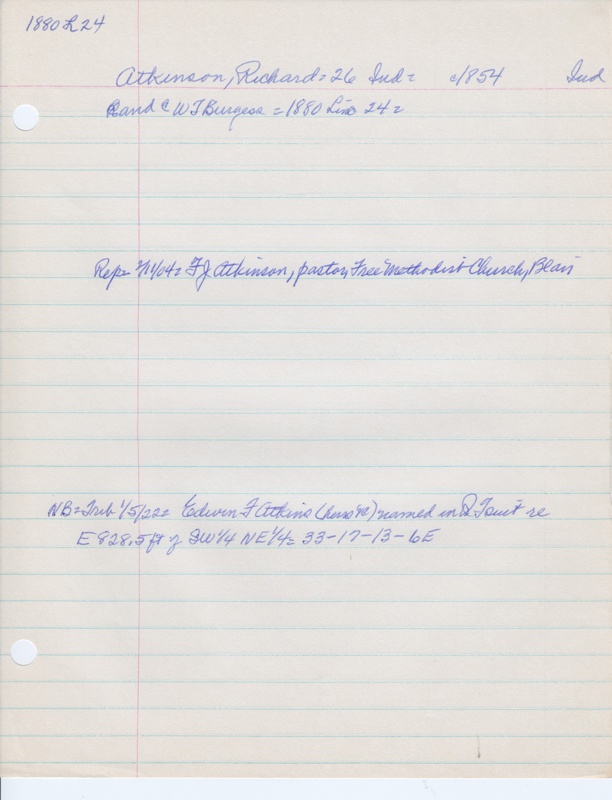 1880 L 24
Atkinson, Richard = 26 Ind = c1854 Ind
and W T Burgess = 1880 Line 24 =
Rep = F J Atkinson, pastor, Free Methodist Church, Blair
NB = Trib 1/5/22 = Edwin F Atkins named in Q T suit re
E 828.5 ft of SW 1/4 NE 1/4 = 33-17-13-6E